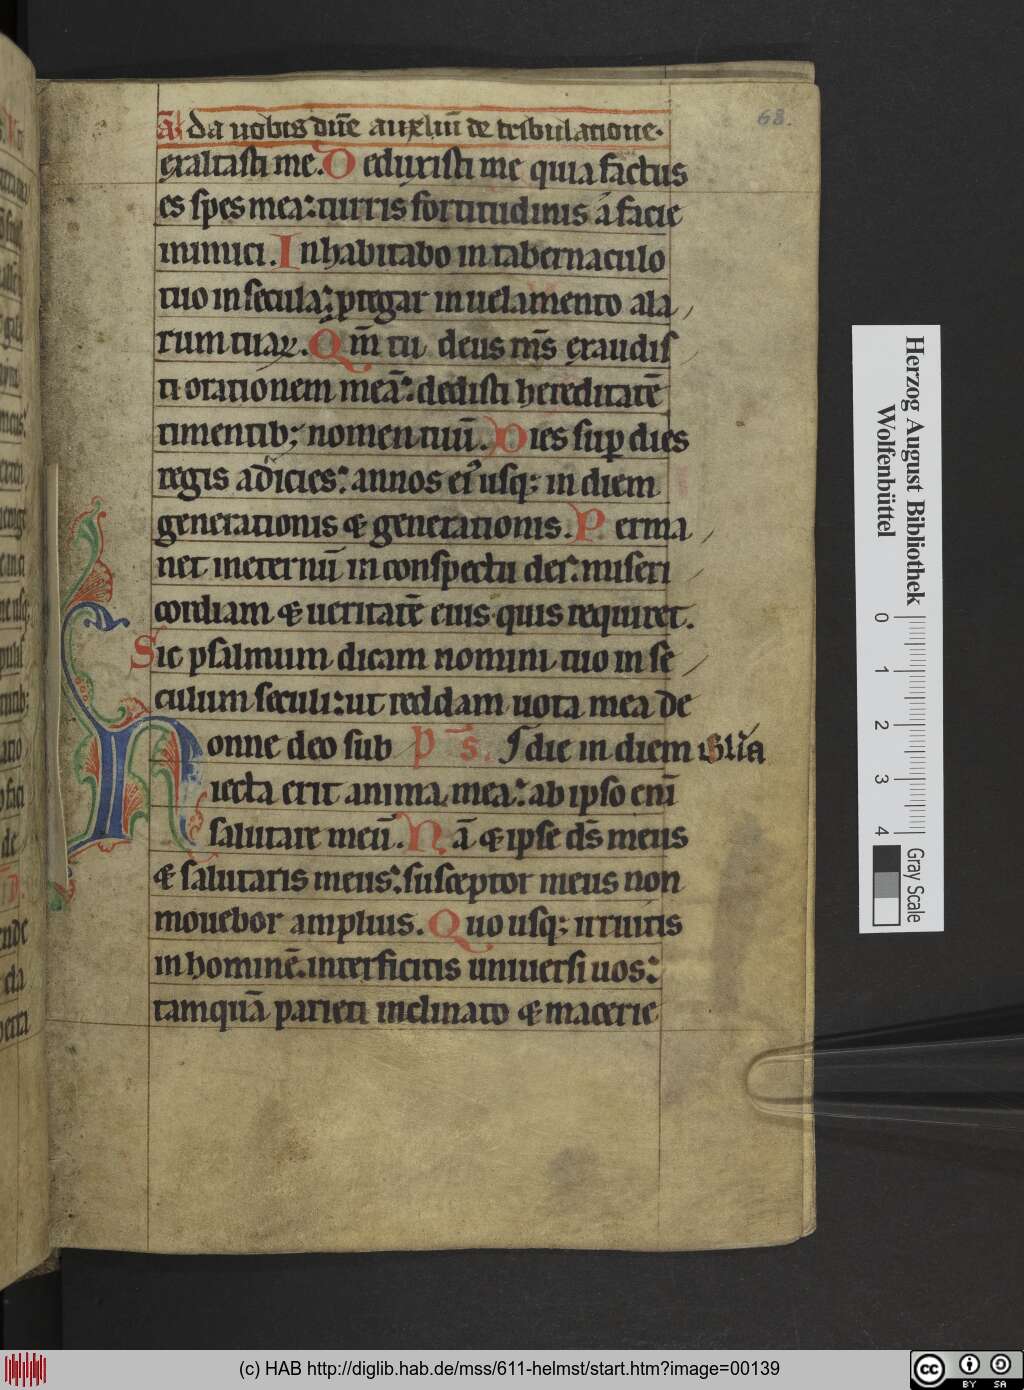 68.
a᷒ Da uobis dn̄e auxiliū de tribulatione.
exaltasti me. Deduxisti me quia factus
es spes mea: turris fortitudinis a facie
inimici. Inhabitabo in tabernaculo
tuo in secula: ꝓtegar in uelamento ala
rum tuaꝝ. Qm̄ tu deus m̄s exaudis
ti orationem meā: dedisti hereditatē
timentib; nomen tuū. Dies suꝑ dies
regis adicies: annos eiꝰ usq; in diem
generationis & generationis. Perma
net ineternū in conspectu dei: miseri
cordiam & ueritatē eius quis requiret.
Sic psalmum dicam nomini tuo in se
culum seculi: ut reddam uota mea de
Nonne deo sub p̄s. die in diem Gl̄ia
iecta erit anima mea: ab ipso eni̅
salutare meū. Nā & ipse ds̄ meus
& salutaris meus: susceptor meus non
mouebor amplius. Quo usq; irruitis
in hominē. interficitis uniuersi uos:
tamquā parieti inclinato & macerie
Herzog August Bibliothek
Wolfenbüttel
0 1 2 3 4
Gray Scale
(c) HAB http://diglib.hab.de/mss/611-helmst/start.htm?image=00139
cc BY SA